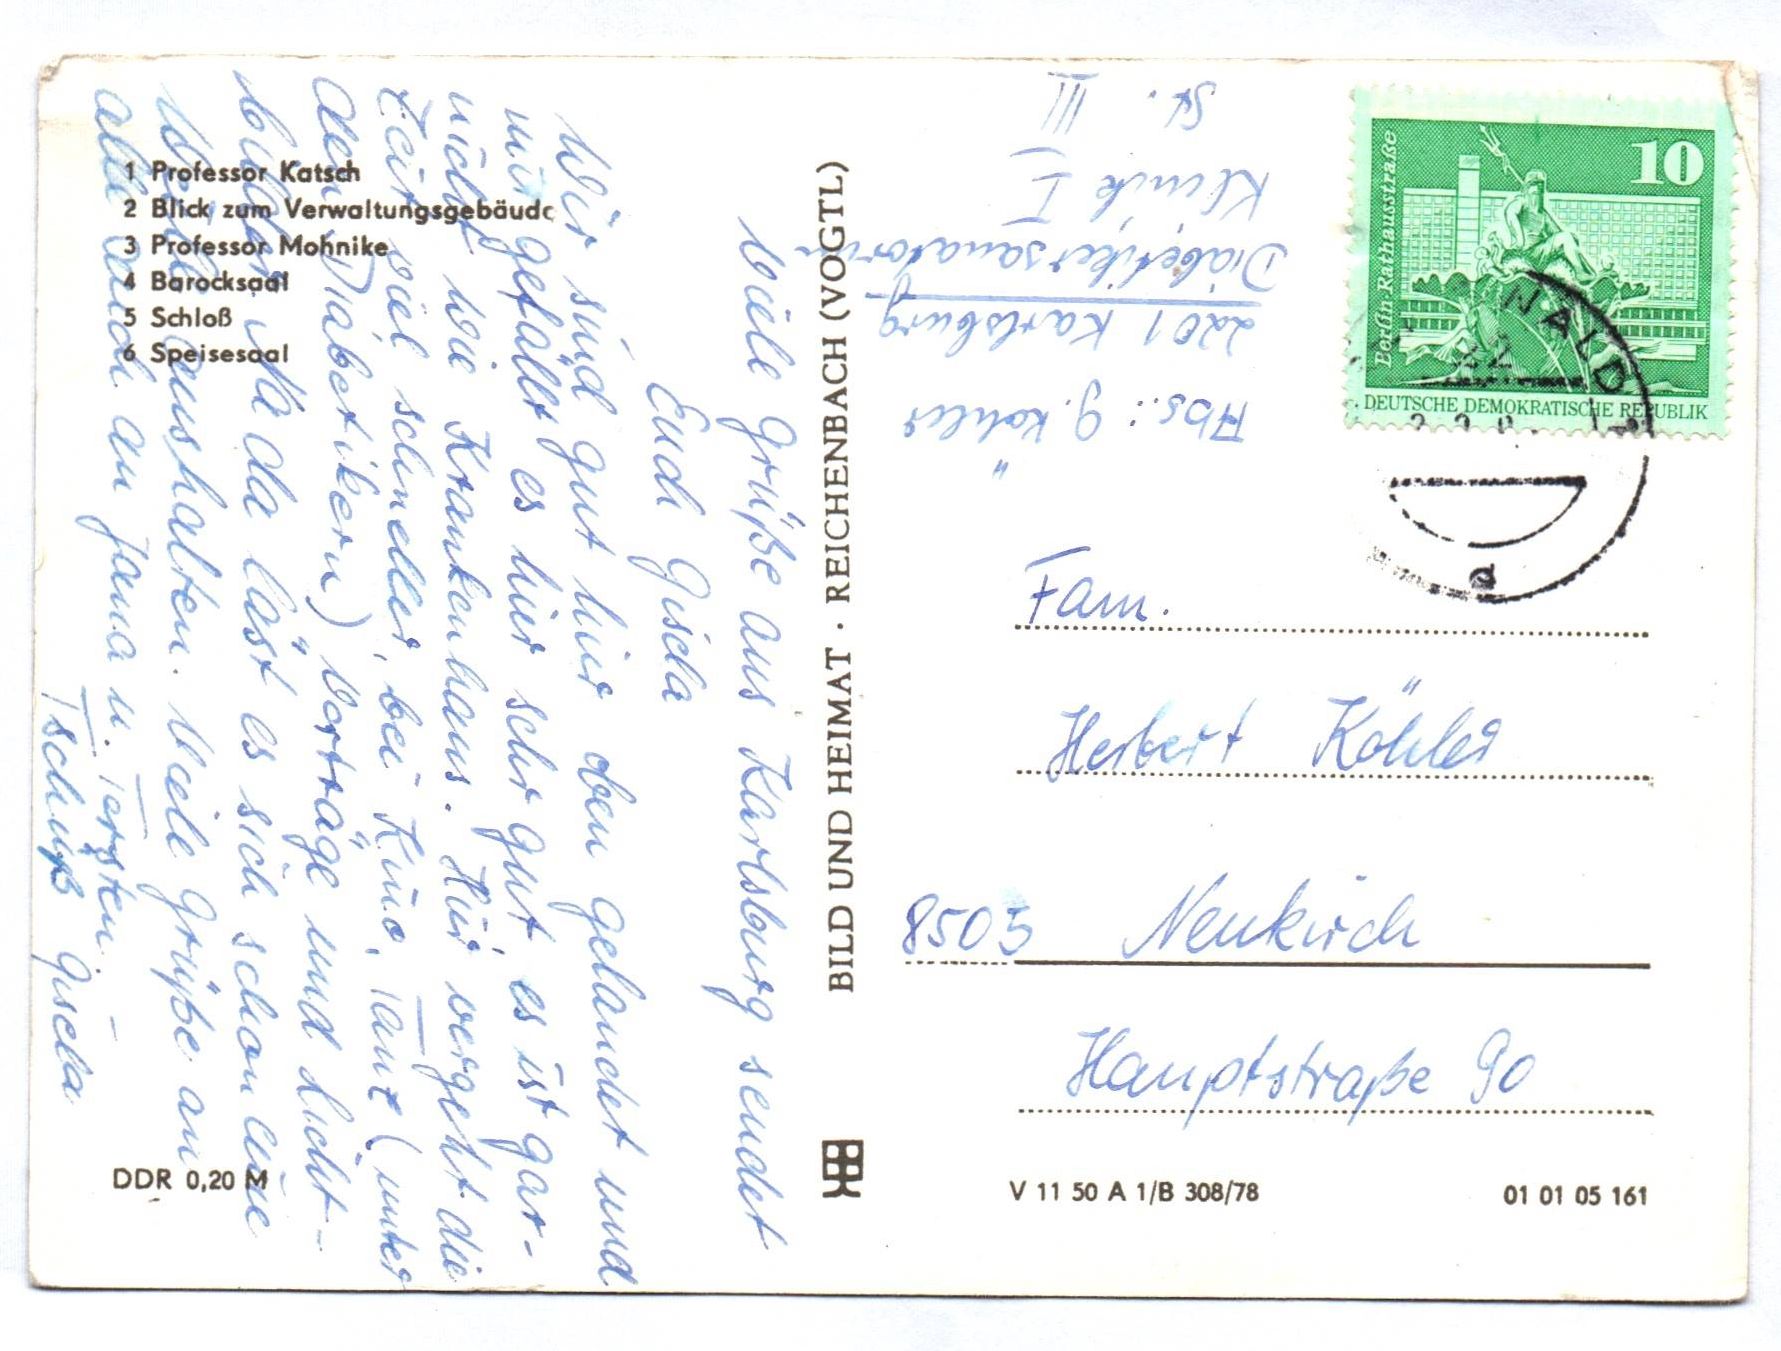 1 Professor Katsch
2 Blick zum Verwaltungsgebäude
3 Professor Mohnike
4 Barocksaal
5 Schloß
6 Speisesaal
Viele Grüße aus Karlsburg sendet
Euch Gisela
Wir sind gut hier oben gelandet und
mir gefällt es hier sehr gut, es ist gar-
nicht wie Krankenhaus. Hier vergeht die
Zeit viel schneller, bei Kino, Tanz (unter
den Diabetikern) Vorträge und Licht-
bilder. Na da läst es sich schon eine
Weile aushalten. Viele Grüße an
alle auch an Jana u. Torsten.
Tschüß Gisela
DDR 0,20 M
BILD UND HEIMAT · REICHENBACH (VOGTL)
Abs.: G. Köhler
2201 Karlsburg
Diabetikersanatorium
Klinik I
St. III
10
Berlin · Rathausstraße
DEUTSCHE DEMOKRATISCHE REPUBLIK
WALD
e
Fam.
Herbert Köhler
8505 Neukirch
Hauptstraße 90
V 11 50 A 1/B 308/78
01 01 05 161